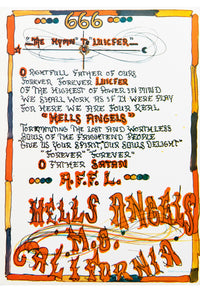 666
"THE HYMN" TO LUICFER...
O RIGHTFULL FATHER OF OURS
FOREVER FOREVER LUICFER
OF THE HIGHEST OF POWER IN MIND
WE SHALL WORK AS IF IT WERE PLAY
FOR HERE WE ARE YOUR REAL
"HELLS ANGELS"
TORMENTING THE LOST AND WORTHLESS
SOULS OF THE FRIGHTEND PEOPLE
GIVE US YOUR SPIRIT, OUR SOULS DELIGHT
"FOREVER" "FOREVER"
O FATHER SATAN
A.F.F.L.
HELLS ANGELS
M.C.
CALIFORNIA